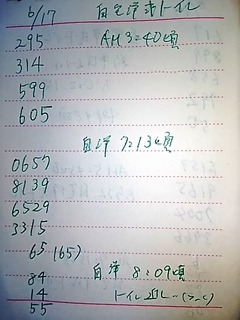 6/17 自宅洋式トイレ
295 AM 3:40頃
314
599
605
自洋 7:13頃
0657
8139
6529
3315
65 (65)
84 自洋 8:09頃
14 トイレ
55